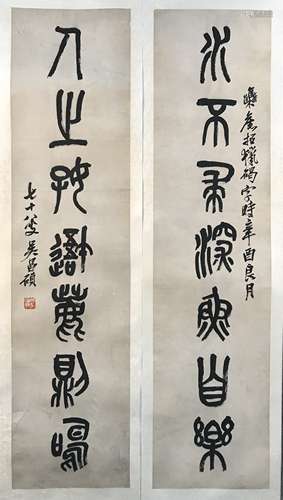 水不求深魚自樂
集舊拓獵碣字時辛酉良月
人之好鹿則鳴
七十八叟吳昌碩